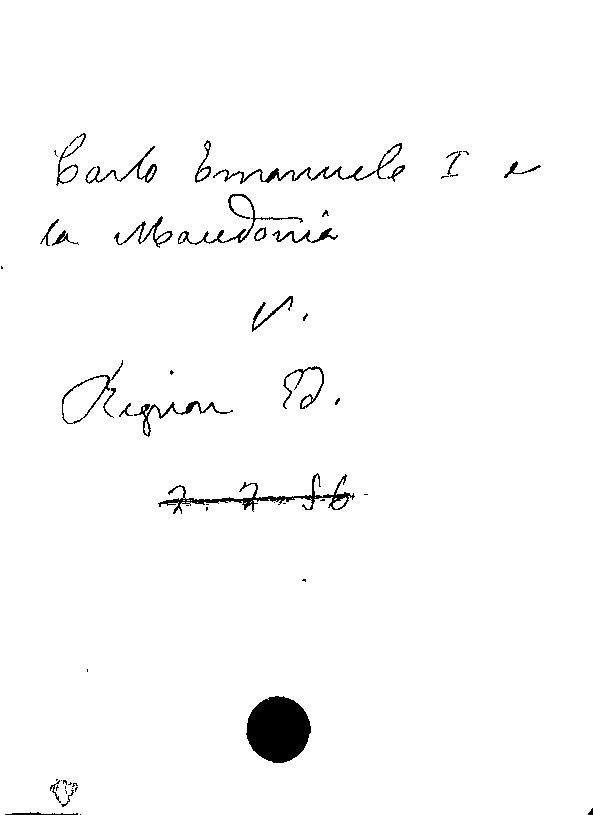 Carlo Emanuele I e
la Macedonia
V.
Rignon Ed.
7. 7. 56